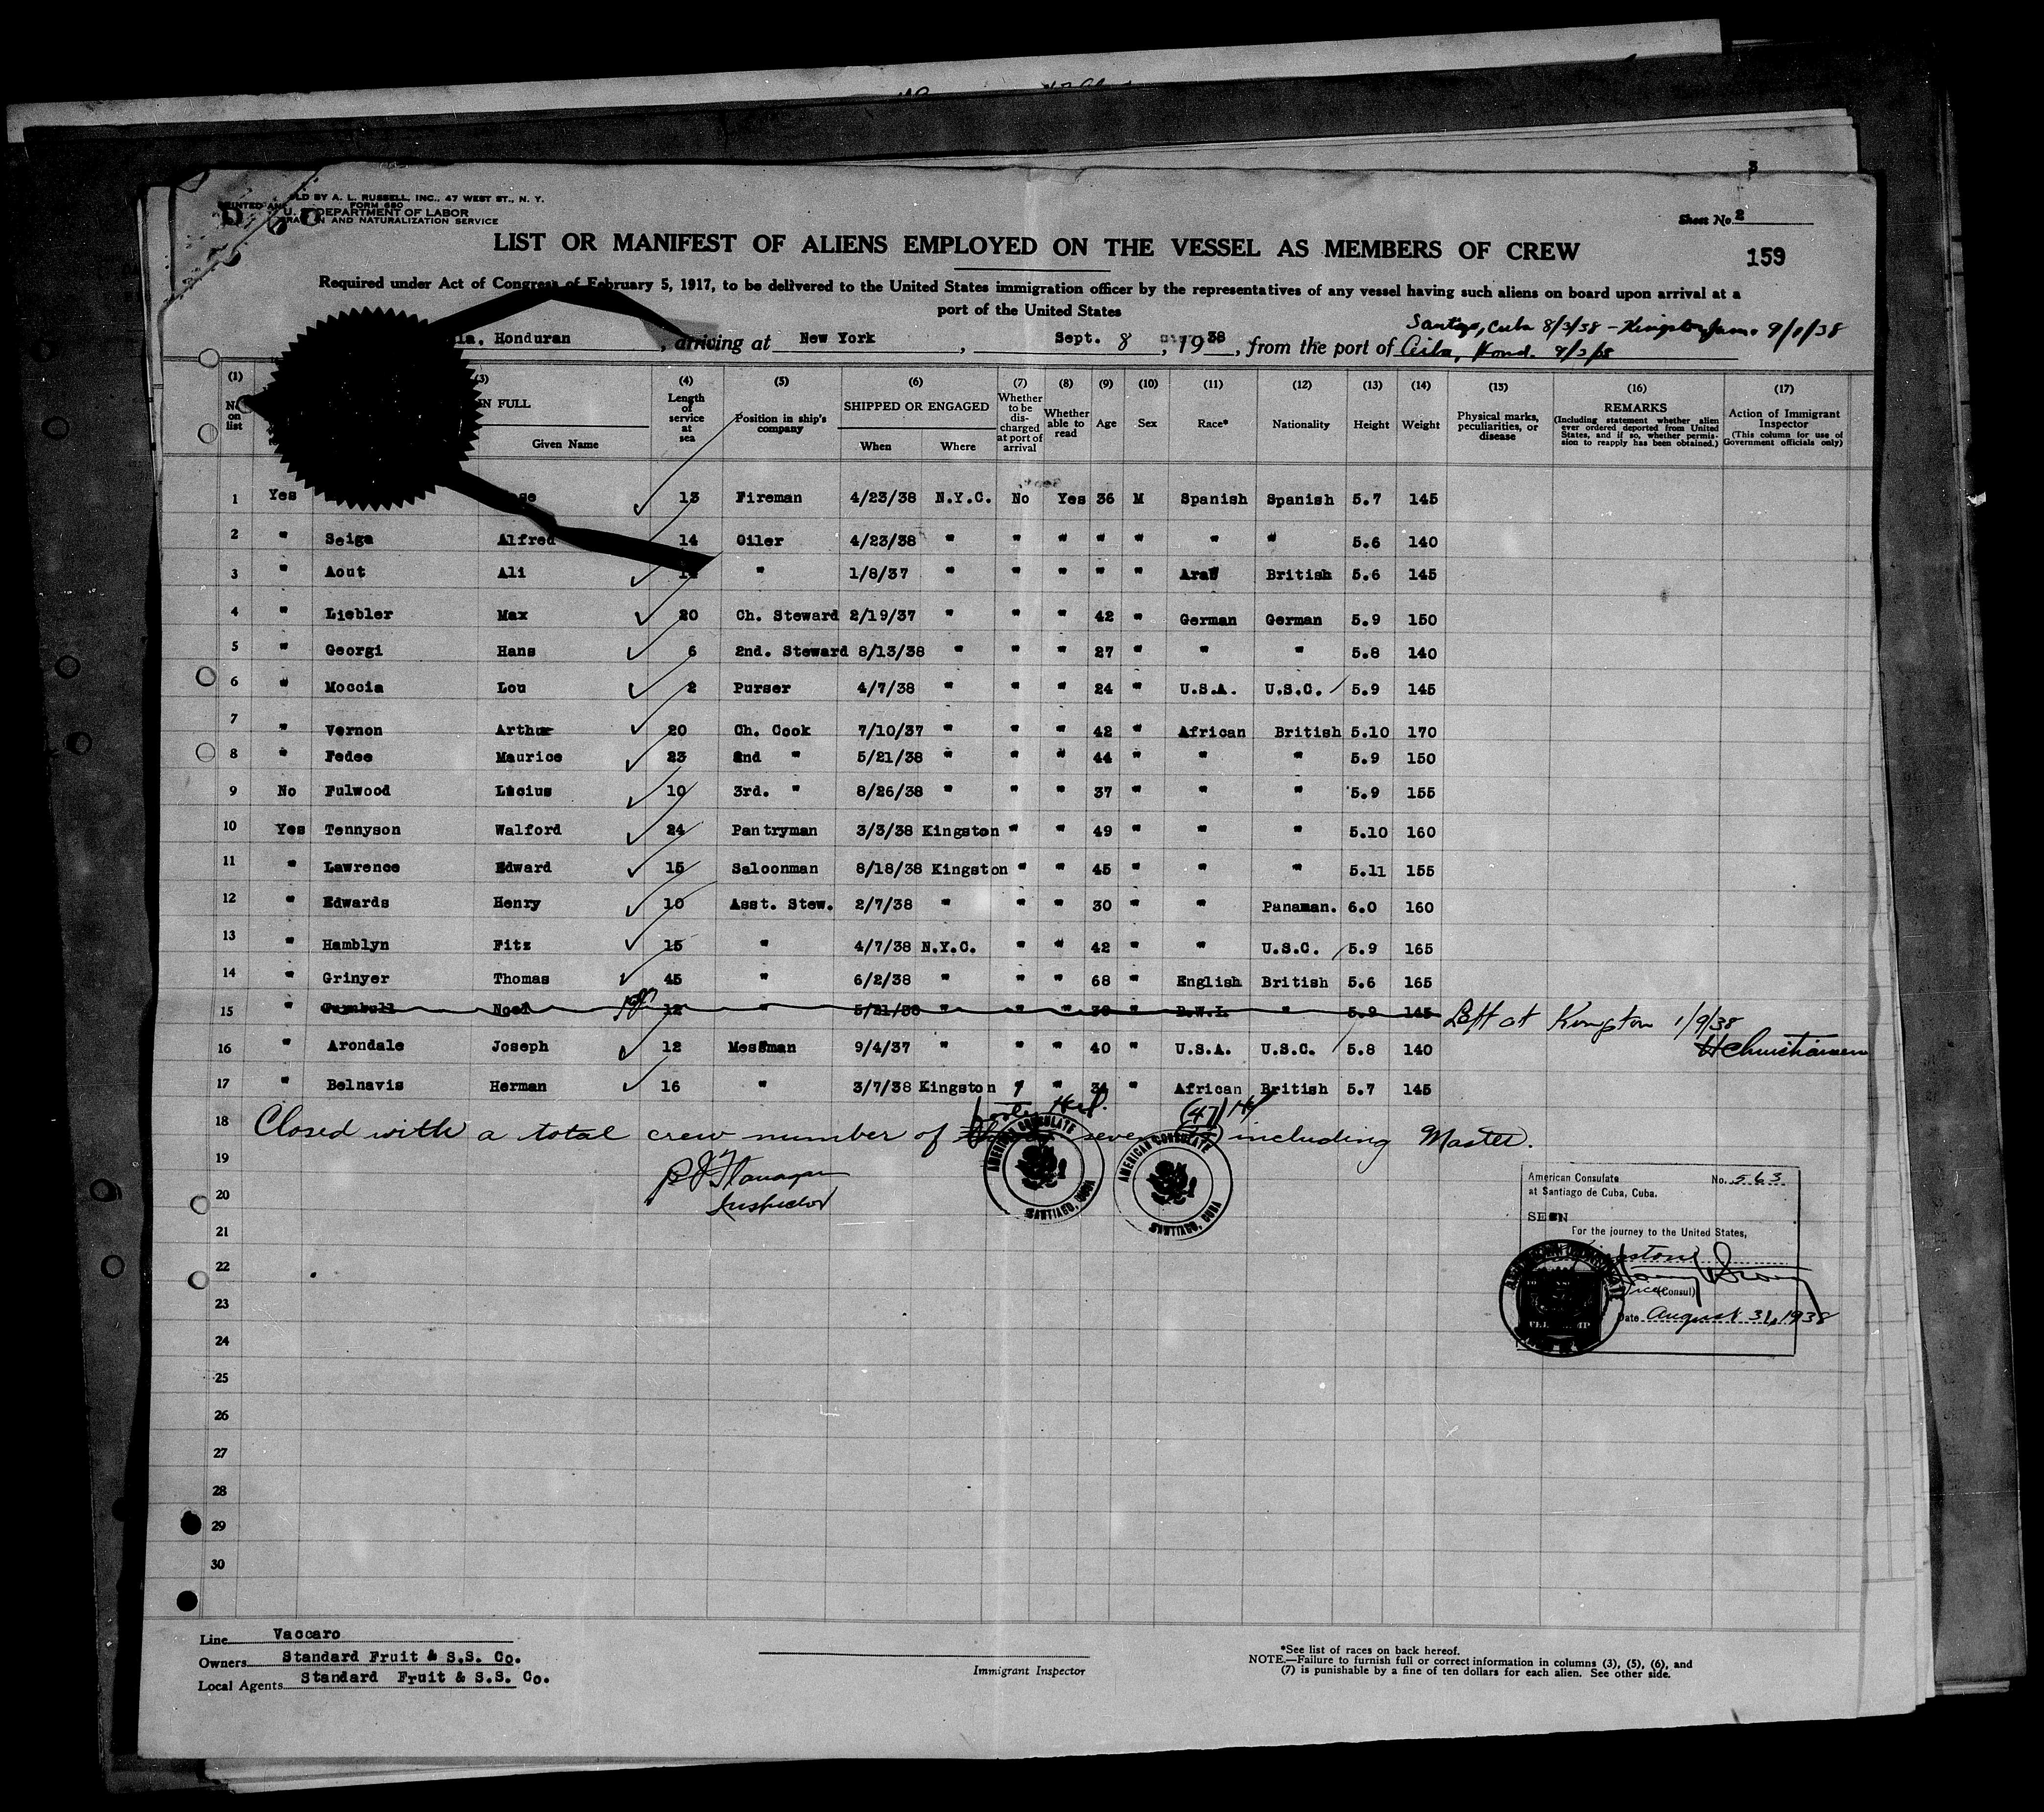 3
LD BY A. L. RUSSELL, INC., 47 WEST ST., N. Y.
FORM 680
DEPARTMENT OF LABOR
AND NATURALIZATION SERVICE
Sheet No. 2
LIST OR MANIFEST OF ALIENS EMPLOYED ON THE VESSEL AS MEMBERS OF CREW
159
Required under Act of Congress of February 5, 1917, to be delivered to the United States immigration officer by the representatives of any vessel having such aliens on board upon arrival at a
port of the United States
Santiago, Cuba 8/3/38 - Kingston Jam. 9/1/38
Honduran, arriving at New York, Sept. 8, 1938, from the port of Ceiba, Hond. 9/3/38
(1) (3) (4) (5) (6) (7) (8) (9) (10) (11) (12) (13) (14) (15) (16) (17)
No. on list IN FULL Given Name Length of service at sea Position in ship's company SHIPPED OR ENGAGED When Where Whether to be discharged at port of arrival Whether able to read Age Sex Race* Nationality Height Weight Physical marks, peculiarities, or disease REMARKS (Including statement whether alien ever ordered deported from United States, and if so, whether permission to reapply has been obtained.) Action of Immigrant Inspector (This column for use of Government officials only)
1 Yes 13 Fireman 4/23/38 N.Y.C. No Yes 36 M Spanish Spanish 5.7 145
2 " Seiga Alfred 14 Oiler 4/23/38 " " " " " " " 5.6 140
3 " Aout Ali " 1/8/37 " " " " " Arab British 5.6 145
4 " Liebler Max 20 Ch. Steward 2/19/37 " " " 42 " German German 5.9 150
5 " Georgi Hans 6 2nd. Steward 8/13/38 " " " 27 " " " 5.8 140
6 " Moccia Lou 2 Purser 4/7/38 " " " 24 " U.S.A. U.S.C. 5.9 145
7 " Vernon Arthur 20 Ch. Cook 7/10/37 " " " 42 " African British 5.10 170
8 " Fedee Maurice 23 2nd " 5/21/38 " " " 44 " " " 5.9 150
9 No Fulwood Lucius 10 3rd. " 8/26/38 " " " 37 " " " 5.9 155
10 Yes Tennyson Walford 24 Pantryman 3/3/38 Kingston " " 49 " " " 5.10 160
11 " Lawrence Edward 15 Saloonman 8/18/38 Kingston " " 45 " " " 5.11 155
12 " Edwards Henry 10 Asst. Stew. 2/7/38 " " " 30 " " Panaman. 6.0 160
13 " Hamblyn Fitz 15 " 4/7/38 N.Y.C. " " 42 " " U.S.C. 5.9 165
14 " Grinyer Thomas 45 " 6/2/38 " " " 68 " English British 5.6 165
15 " Noel 12 " 5/21/38 " " " " B.W.I. " 5.9 145 Left at Kingston 1/9/38
H Christiansen
16 " Arondale Joseph 12 Messman 9/4/37 " " " 40 " U.S.A. U.S.C. 5.8 140
17 " Belnavis Herman 16 " 3/7/38 Kingston " " 34 " African British 5.7 145
forty (47)
18 Closed with a total crew number of seven including Master.
19 P J Flanagan
20 Inspector
21
22
23
24
25
26
27
28
29
30
AMERICAN CONSULATE SANTIAGO, CUBA
AMERICAN CONSULATE SANTIAGO, CUBA
American Consulate No. 563
at Santiago de Cuba, Cuba.
SEEN
For the journey to the United States,
Vice (Consul)
Date August 31, 1938
Line Vaccaro
Owners Standard Fruit & S.S. Co.
Local Agents Standard Fruit & S.S. Co.
Immigrant Inspector
*See list of races on back hereof.
NOTE.—Failure to furnish full or correct information in columns (3), (5), (6), and
(7) is punishable by a fine of ten dollars for each alien. See other side.